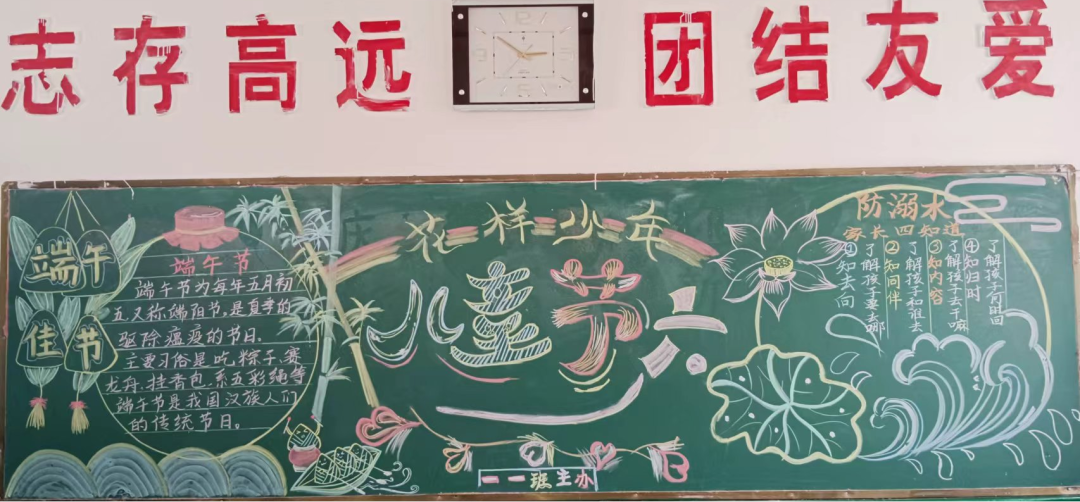 志存高远
团结友爱
端午
佳节
端午节
端午节为每年五月初
五又称端阳节,是夏季的
驱除瘟疫的节日.
主要习俗是吃,粽子.赛
龙舟.挂香肉.系五彩绳等
端午节是我国汉族人们
的传统节日。
花样少年
儿童节
一一班主办
防溺水
家长四知道
①知去向
了解孩子要去哪
②知同伴
了解孩子和谁去
③知内容
了解孩子去干嘛
④知归时
了解孩子何时回